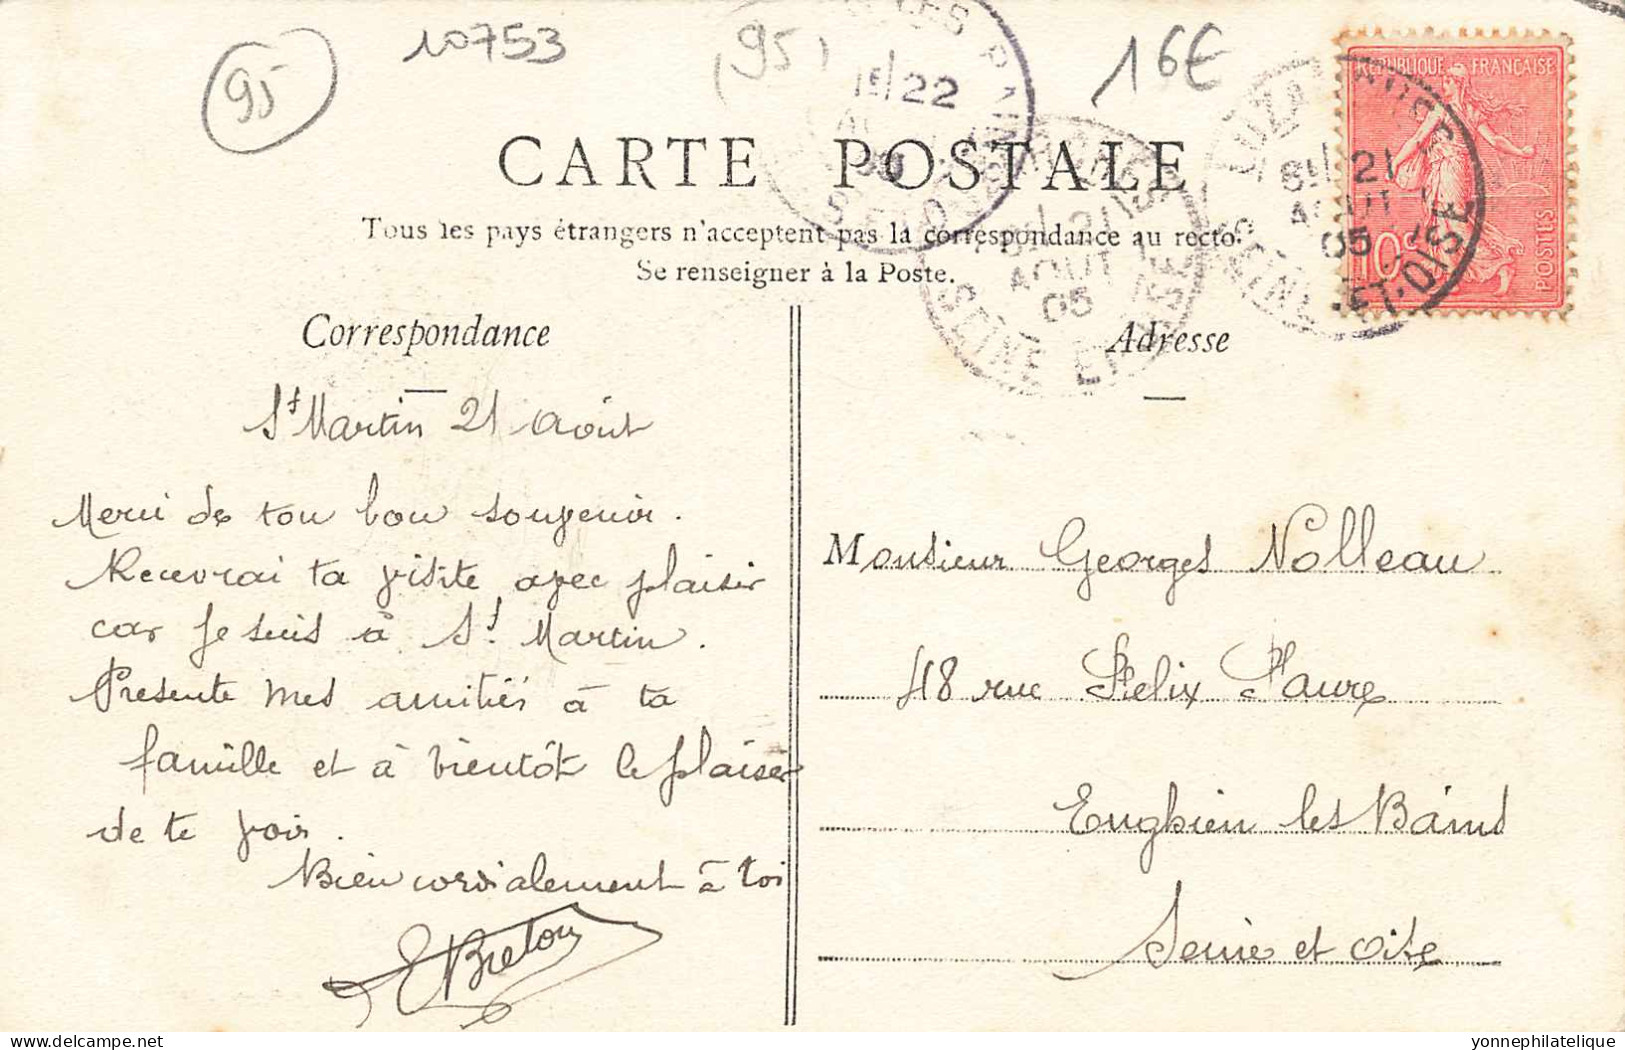 95
10753
95
16€
15/22
RÉPUBLIQUE FRANÇAISE
POSTES
10c
LUZARCHES
8H 21
AOUT
05
SEINE-ET-OISE
21
AOUT
05
SEINE ET
CARTE POSTALE
Tous les pays étrangers n'acceptent pas la correspondance au recto.
Se renseigner à la Poste.
Correspondance
St Martin 21 Août
Merci de ton bon souvenir.
Recevrai ta visite avec plaisir
car je suis à St. Martin.
Presente mes amitiés à ta
famille et à bientôt le plaisir
de te voir.
Bien cordialement à toi
E Breton
Adresse
Monsieur Georges Nolleau
48 rue Felix Faure
Enghien les Bains
Seine et Oise
yonnephilatelique
delcampe.net